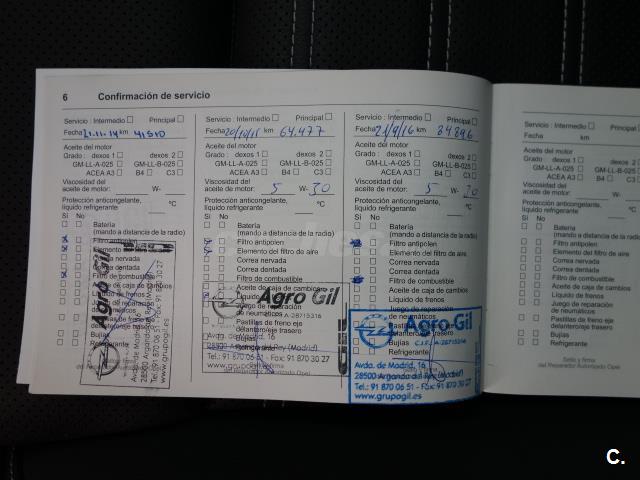 6 Confirmación de servicio
Servicio : Intermedio Principal
Fecha 21.11.14 km 41510
Aceite del motor
Grado : dexos 1 dexos 2
GM-LL-A-025 GM-LL-B-025
ACEA A3 B4 C3
Viscosidad del
aceite de motor: W-
Protección anticongelante,
líquido refrigerante °C
Sí No
Batería
(mando a distancia de la radio)
Filtro antipolen
Elemento del filtro de aire
Correa nervada
Correa dentada
Filtro de combustible
Aceite de caja de cambios
Líquido de frenos
Juego de reparación
de neumáticos
Pastillas de freno eje
delantero/eje trasero
Bujías
Refrigerante
Agro Gil
Avda. de Madrid, 16
www.grupogil.es
Servicio : Intermedio Principal
Fecha 20/10/15 km 64.477
Aceite del motor
Grado : dexos 1 dexos 2
GM-LL-A-025 GM-LL-B-025
ACEA A3 B4 C3
Viscosidad del
aceite de motor: 5 W- 30
Protección anticongelante,
líquido refrigerante °C
Sí No
Batería
(mando a distancia de la radio)
Filtro antipolen
Elemento del filtro de aire
Correa nervada
Correa dentada
Filtro de combustible
Aceite de caja de cambios
Líquido de frenos
Juego de reparación
de neumáticos
Pastillas de freno eje
delantero/eje trasero
Bujías
Refrigerante
Agro Gil
A-28715316
Avda. de Madrid, 16
28500 Arganda del Rey (Madrid)
Tel.: 91 870 06 51 - Fax: 91 870 30 27
www.grupogil.es
Servicio : Intermedio Principal
Fecha 21/9/16 km 84896
Aceite del motor
Grado : dexos 1 dexos 2
GM-LL-A-025 GM-LL-B-025
ACEA A3 B4 C3
Viscosidad del
aceite de motor: 5 W- 30
Protección anticongelante,
líquido refrigerante °C
Sí No
Batería
(mando a distancia de la radio)
Filtro antipolen
Elemento del filtro de aire
Correa nervada
Correa dentada
Filtro de combustible
Aceite de caja de cambios
Líquido de frenos
Juego de reparación
de neumáticos
Pastillas de freno eje
delantero/eje trasero
Bujías
Refrigerante
Agro-Gil
C.I.F. A-28715316
Avda. de Madrid, 16
28500 Arganda del Rey (Madrid)
Tel.: 91 870 06 51 - Fax: 91 870 30 27
www.grupogil.es
Servicio : Intermedio
Fecha km
Aceite del motor
Grado : dexos 1
GM-LL-A-025
ACEA A3
Viscosidad del
aceite de motor:
Protección anticongelante,
líquido refrigerante
Sí No
Batería
(mando a distancia de la
Filtro antipolen
Elemento del filtro de
Correa nervada
Correa dentada
Filtro de combustible
Aceite de caja de
Líquido de frenos
Juego de reparación
de neumáticos
Pastillas de freno eje
delantero/eje trasero
Bujías
Refrigerante
Sello y firma
del Reparador Autorizado Opel
C.